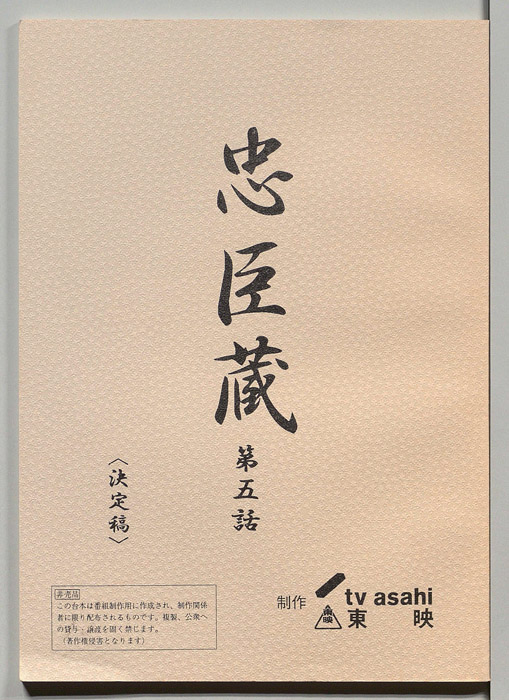 忠臣蔵
第五話
〈決定稿〉
非売品
この台本は番組制作用に作成され、制作関係
者に限り配布されるものです。複製、公衆へ
の貸与・譲渡を固く禁じます。
（著作権侵害となります）
制作
tv asahi
東映
東映